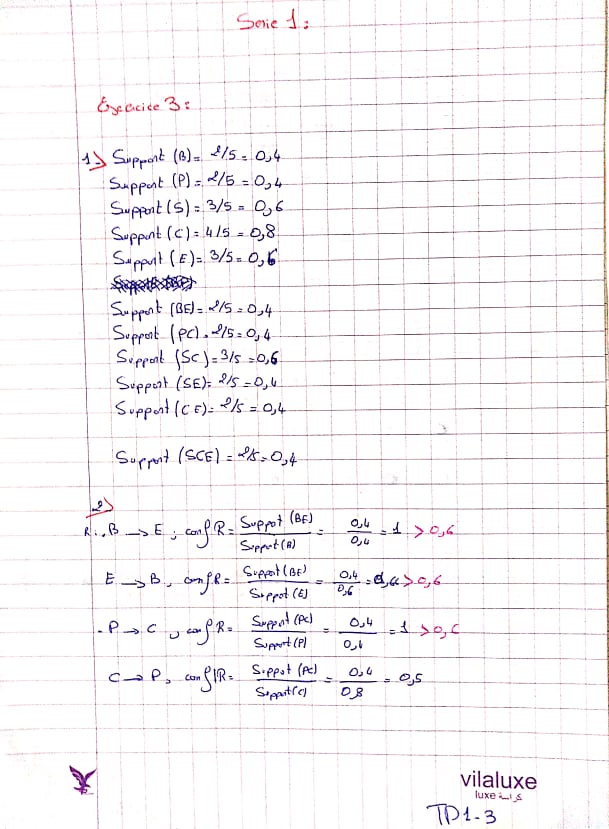 Serie 1:
Exercice 3:
1) Support (B) = 2/5 = 0,4
Support (P) = 2/5 = 0,4
Support (S) = 3/5 = 0,6
Support (C) = 4/5 = 0,8
Support (E) = 3/5 = 0,6
Support (BE) = 2/5 = 0,4
Support (PC) = 2/5 = 0,4
Support (SC) = 3/5 = 0,6
Support (SE) = 2/5 = 0,4
Support (CE) = 2/5 = 0,4
Support (SCE) = 2/5 = 0,4
2)
R: B → E ; conf R = Suppot (BE) / Support (B) = 0,4 / 0,4 = 1 > 0,6
E → B, conf R = Support (BE) / Suppot (E) = 0,4 / 0,6 = > 0,6
- P → C, conf R = Support (PC) / Support (P) = 0,4 / 0,4 = 1 > 0,6
C → P, conf R = Suppot (PC) / Support (C) = 0,4 / 0,8 = 0,5
vilaluxe
luxe كراسة
TD1-3